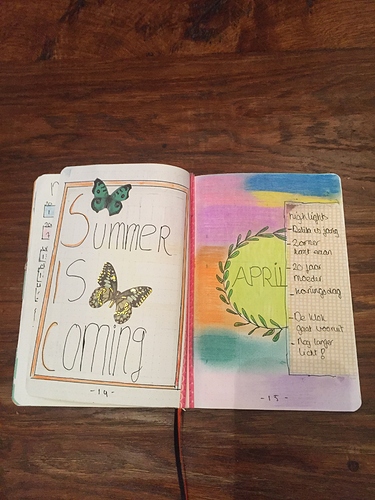 Summer
is
coming
- 14 -
APRIL
highlights
- Dalila is jarig
- Zomer
komt eraan
- 20 jaar
moeder
- koningsdag
- De klok
gaat vooruit
- Nog langer
licht!
- 15 -